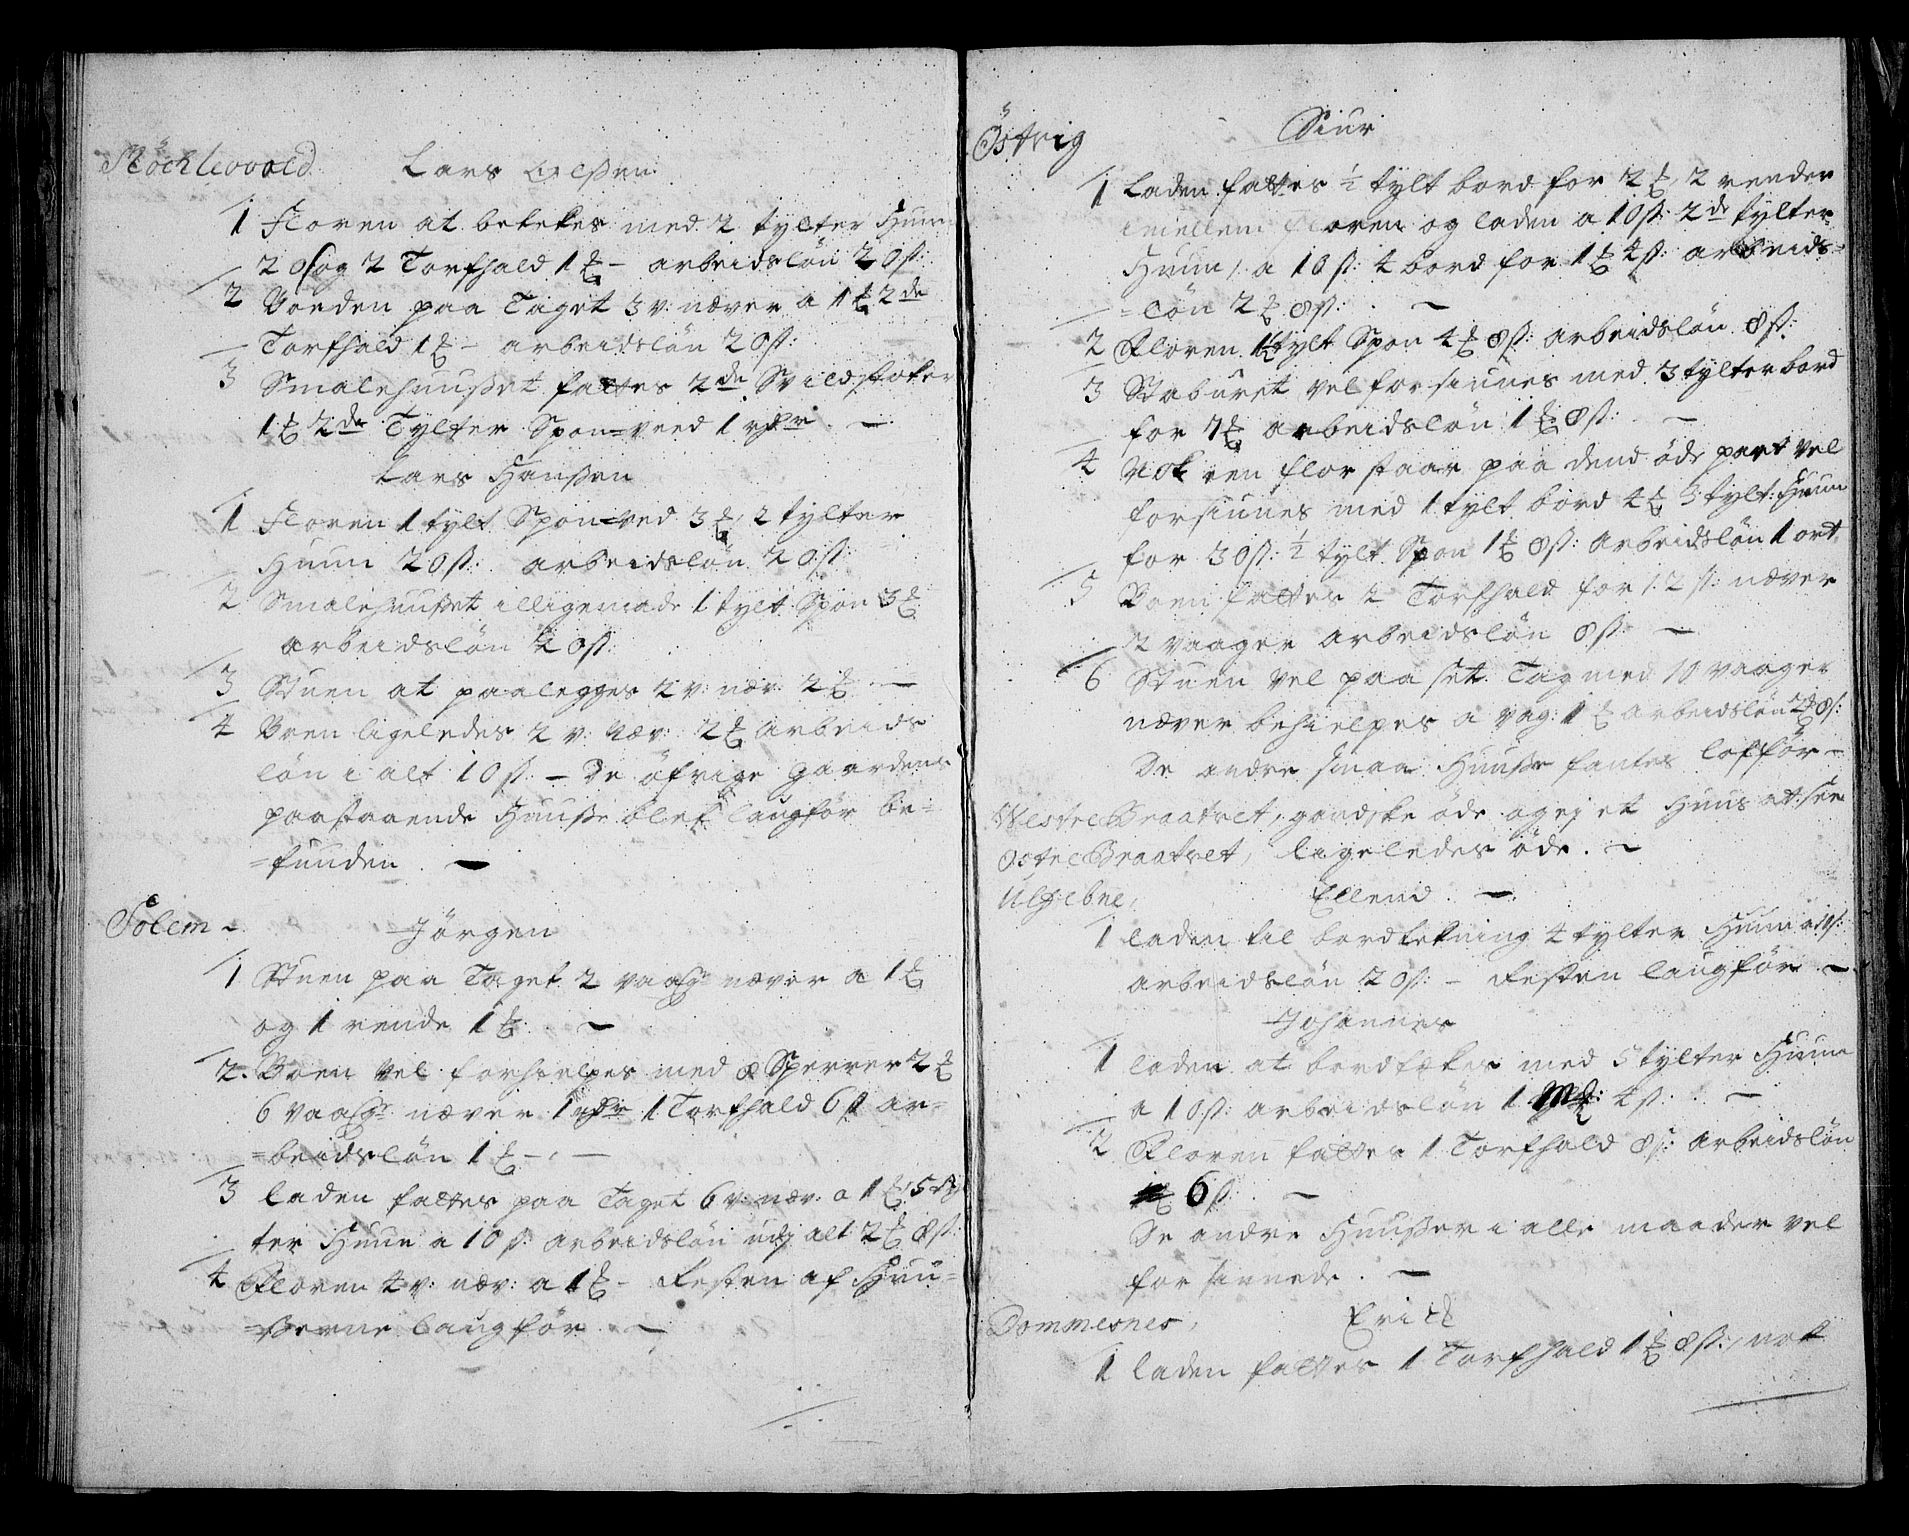 Støchlevold Lars Olssen
1 Floren at betekes med 2 tylter Huun
20ß og 2 Torfhald 1 ℔ - arbeidsløn 20ß:
2 Boeden paa Taget 3 v: næver a 1 ℔ 2de
Torfhald 1 ℔ - arbeidsløn 20ß:
3 Smalehuusset fattes 2de Svildstoker
1 ℔ 2de Tylter Spon=veed 1 rdr. —
Lars Hanssen
1 Floren 1 tylt Spon=ved 3 ℔, 2 tylter
Huun 20ß: arbeidsløn 20ß:
2 Smalehuusset illigemaade 1 tylt Spon 3 ℔
arbeidsløn 20ß:
3 Stuen at paalegges 2 v: nær: 2 ℔ —
4 Boen ligeledes 2 v: Nær: 2 ℔ arbeids
løn i alt 10ß: — De øfrige gaardens
paastaaende Huusse blef laugfør be=
=funden. —
Solem - Jørgen
1 Stuen paa Taget 2 vaager næver a 1 ℔
og 1 rende 1 ℔. —
2. Boen vel forhielpes med Sperrer 2 ℔
6 vaager næver 1 rdr 1 Torfhald 6ß ar=
=beidsløn 1 ℔ -, —
3 laden fattes paa Taget 6 v: næv: a 1 ℔, 5 tyl
ter Huun a 10ß: arbeidsløn udj alt 2 ℔ 8ß:
4 Floren 4 v: næv: a 1 ℔ - Resten af Huu=
=sserne laugfør. —
Østvig Siur
1 Laden fattes ½ tylt bord for 2 ℔, 2 render
imellem floren og laden a 10ß: 2de tylter
Huun, a 10ß: 4 bord for 1 ℔ 4ß: arbeids=
=løn 2 ℔ 8ß: —
2 Floren 1½ tylt Spon 4 ℔ 8ß: arbeidsløn 8ß:
3 Staburet vel forsiunes med 3 tylter bord
for 7 ℔ arbeidsløn 1 ℔ 8ß: —
4 Nok een flor staar paa dend øde part vel
forsiunes med 1 tylt bord 4 ℔ 3 tylt: Huun
for 30ß: ½ tylt Spon 1 ℔ 8ß: arbeidsløn 1 ort
5 Boen fattes 2 Torfhald for 12ß: næver
2 vaager arbeidsløn 8ß: —
6 Stuen vel paa set Tag med 10 vaager
næver behielpes a vog: 1 ℔ arbeidsløn 2 ℔ 8ß:
De andre smaa Huusse fantes lofför—
Westre Braatvet, gandske øde og ej et Huus at see
Ostre Braatvet, ligeledes øde. —
Ulfebne, Ellend. —
1 laden til bordtekning 4 tylter Huun a 10ß:
arbeidsløn 20ß: - Resten laugfør —
Johannes
1 laden at bordtækes med 5 tylter Huun
a 10ß: arbeidsløn 1 Mk: 4ß: —
2 Floren fattes 1 Torfhald 8ß: arbeidsløn
6ß: —
De andre Huusser i alle maader vel
for siunede. —
Dommesnes, Erich
1 laden fattes 1 Torfhald 1 ℔ 8ß:, not